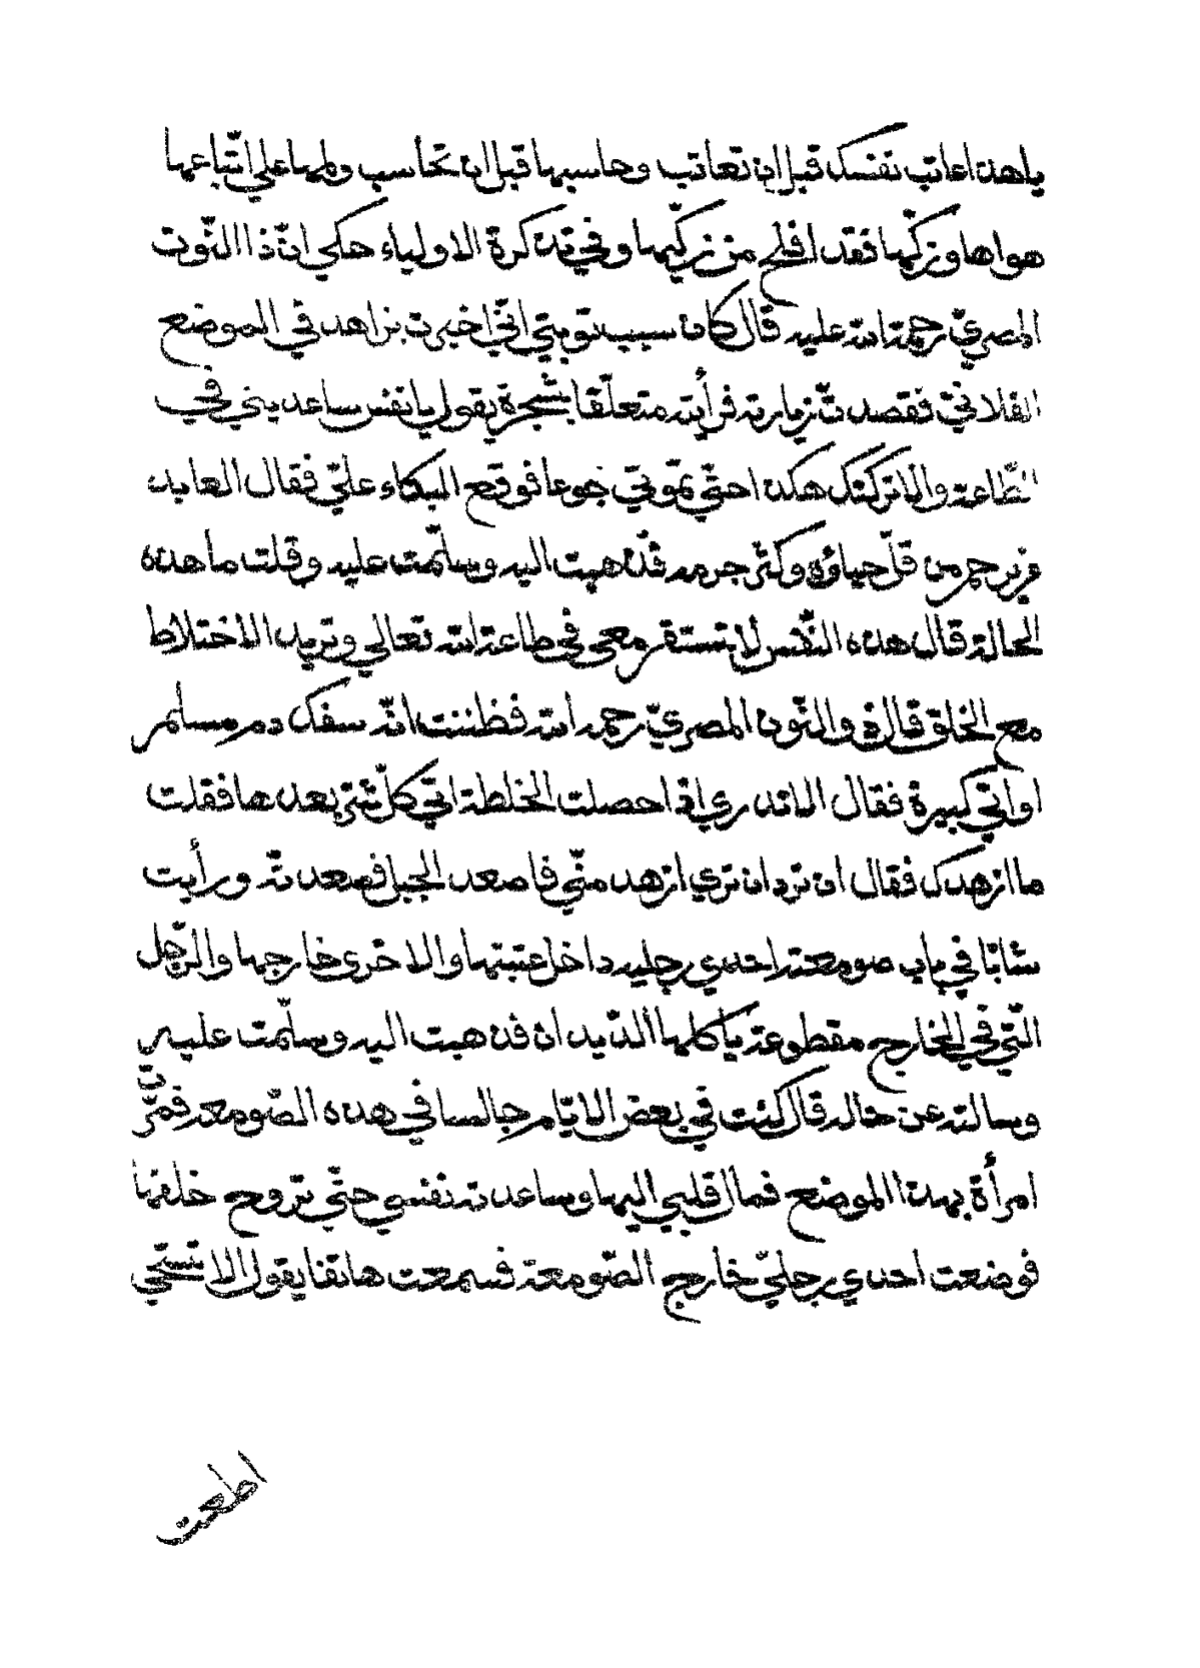 ياهذا عاتب نفسك قبل ان تعاتب وحاسبها قبل ان تحاسب ولمها على اتّباعها
هواها وزكّها فقد افلح من زكّيها وفي تذكرة الاولياء حكي انّ ذا النّون
المصريّ رحمة الله عليه قال كان سبب توبتي انّي اخبرت بزاهد في الموضع
الفلانيّ فقصدتّ زيارته فرأيته متعلّقا بشجرة يقول يا نفس ساعديني في
الطّاعة والا تركتك هكذا حتّي تموتي جوعا فوقع البكاء عليّ فقال العابد
من يرحم من قلّ حياؤه وكثر جرمه فذهبت اليه وسلّمت عليه وقلت ما هذه
الحالة قال هذه النّفس لا تستقر معي في طاعة الله تعالي وتريد الاختلاط
مع الخلق قال ذو النّون المصريّ رحمه الله فظننت انّه سفك دم مسلم
او اتي كبيرة فقال اما تدري اذا حصلت الخلطة اتي كلّ شئ بعدها فقلت
ما ازهدك فقال ان ترد ان تري ازهد منّي فاصعد الجبل فصعدتّه ورأيت
شابّا في باب صومعته احدي رجليه داخل عتبتها والاخرى خارجها والرّجل
الّتي في الخارج مقطوعة يأكلها الدّيدان فذهبت اليه وسلّمت عليه
وسالته عن حاله قال كنت في بعض الايّام جالسا في هذه الصّومعة فمرّت
امرأة بهذا الموضع فمال قلبي اليها وساعدته نفسي حتّي تروح خلفها
فوضعت احدي رجليّ خارج الصّومعة فسمعت هاتفا يقول الا تستحي
اطعت